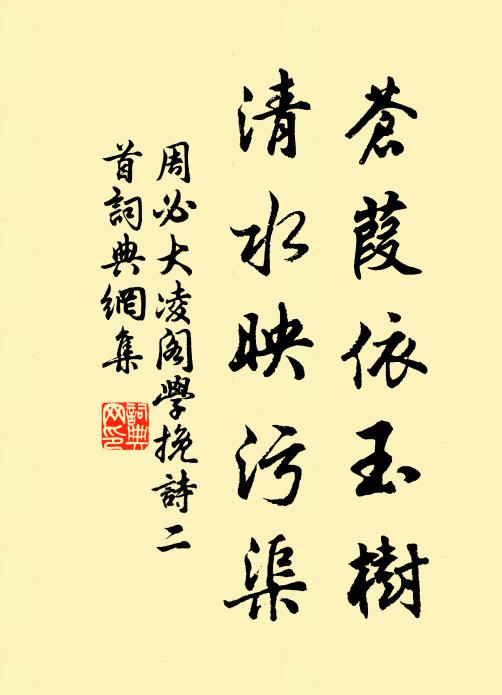 蒼葭依玉樹
清水映污渠
周必大凌閣學挽詩二
首詞典網集
詞典
网印